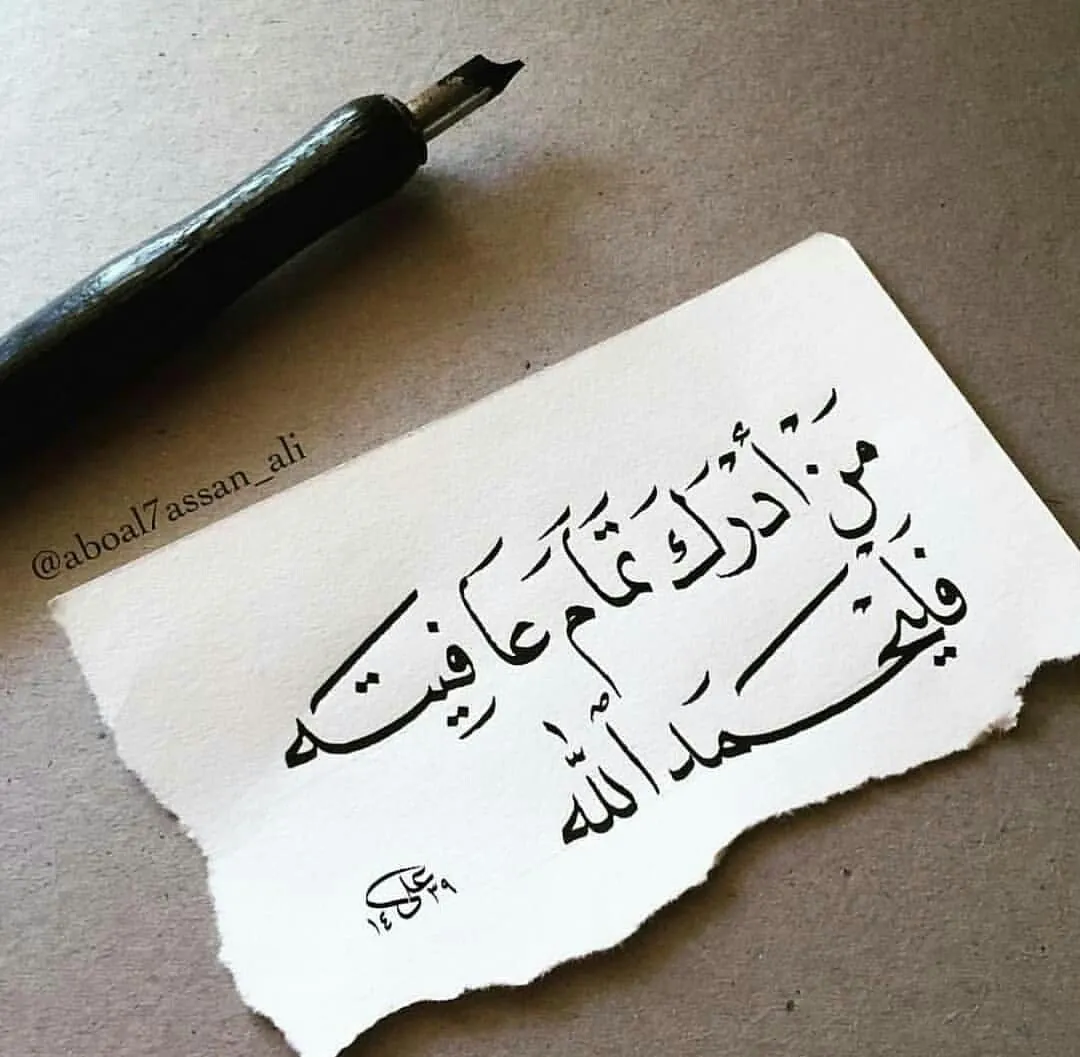 @aboal7assan_ali
مَنْ أَدْرَكَ تَمَامَ عَافِيَته
فَلْيَحْمَدَ ٱللّٰه
علي ١٤٣٩